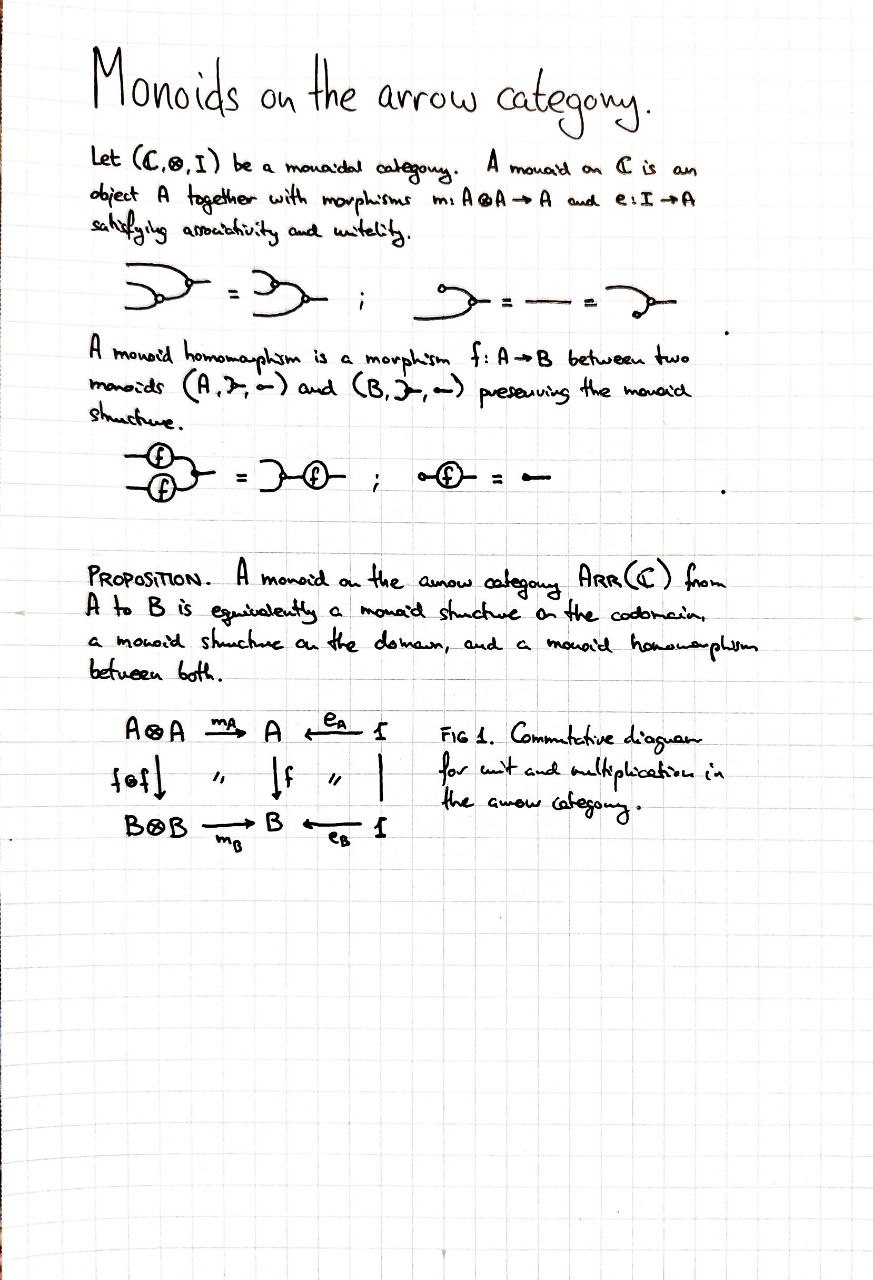 Monoids on the arrow category.
Let (ℂ,⊗,I) be a monoidal category. A monoid on ℂ is an
object A together with morphisms m: A⊗A → A and e: I → A
satisfying associativity and unitality.
= ; = =
A monoid homomorphism is a morphism f: A → B between two
monoids (A, , ) and (B, , ) preserving the monoid
structure.
f f = f ; f =
PROPOSITION. A monoid on the arrow category ARR(ℂ) from
A to B is equivalently a monoid structure on the codomain,
a monoid structure on the domain, and a monoid homomorphism
between both.
A⊗A m_A → A ← e_A I
f⊗f ↓ " ↓ f " |
B⊗B → m_B B ← e_B I
FIG 1. Commutative diagram
for unit and multiplication in
the arrow category.